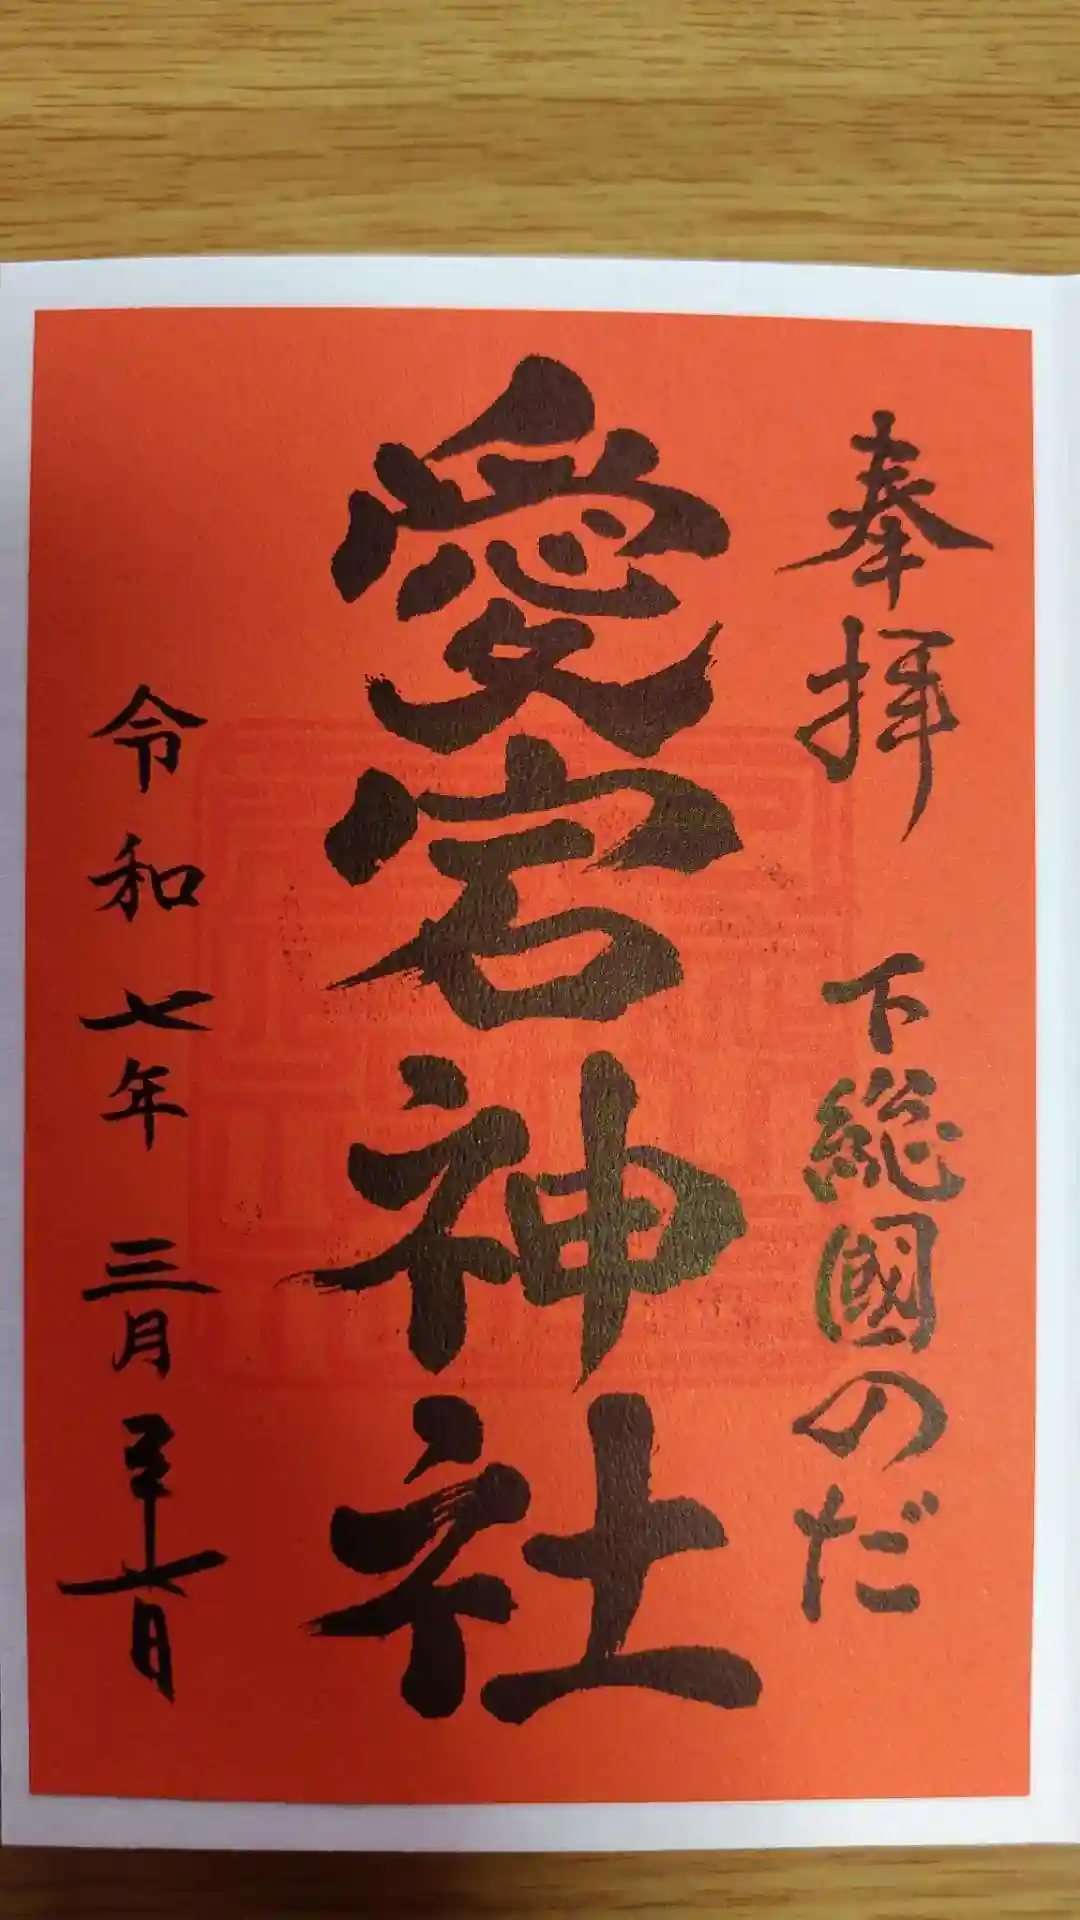 奉拝 下総國のだ
愛宕神社
令和七年三月二十七日